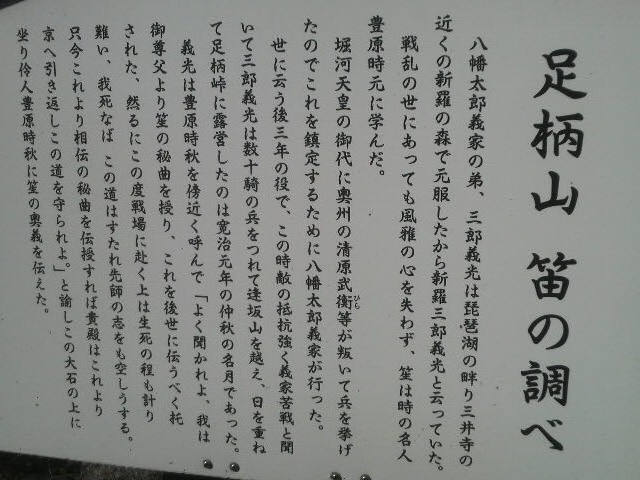 足柄山 笛の調べ
八幡太郎義家の弟、三郎義光は琵琶湖の畔り三井寺の
近くの新羅の森で元服したから新羅三郎義光と云っていた。
戦乱の世にあっても風雅の心を失わず、笙は時の名人
豊原時元に学んだ。
堀河天皇の御代に奥州の清原武衡等が叛いて兵を挙げ
ひら
たのでこれを鎮定するために八幡太郎義家が行った。
世に云う後三年の役で、この時敵の抵抗強く義家苦戦と聞
いて三郎義光は数十騎の兵をつれて逢坂山を越え、日を重ね
て足柄峠に露営したのは寛治元年の仲秋の名月であった。
義光は豊原時秋を傍近く呼んで「よく聞かれよ、我は
御尊父より笙の秘曲を授り、これを後世に伝うべく托
された、然るにこの度戦場に赴く上は生死の程も計り
難い、我死なば この道はすたれ先師の志をも空しうする。
只今これより相伝の秘曲を伝授すれば貴殿はこれより
京へ引き返しこの道を守られよ。」と諭しこの大石の上に
坐り伶人豊原時秋に笙の奥義を伝えた。